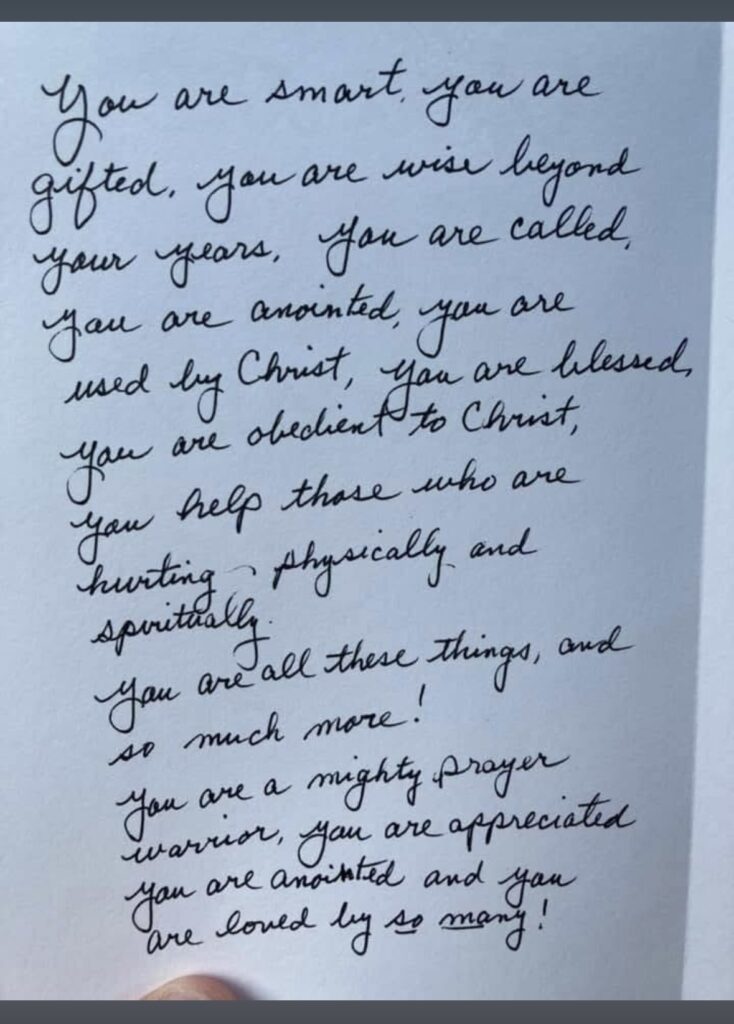 You are smart, you are
gifted, you are wise beyond
your years. You are called,
you are anointed, you are
used by Christ, you are blessed,
you are obedient to Christ,
you help those who are
hurting - physically and
spiritually.
You are all these things, and
so much more!
You are a mighty prayer
warrior, you are appreciated
you are anointed and you
are loved by so many!